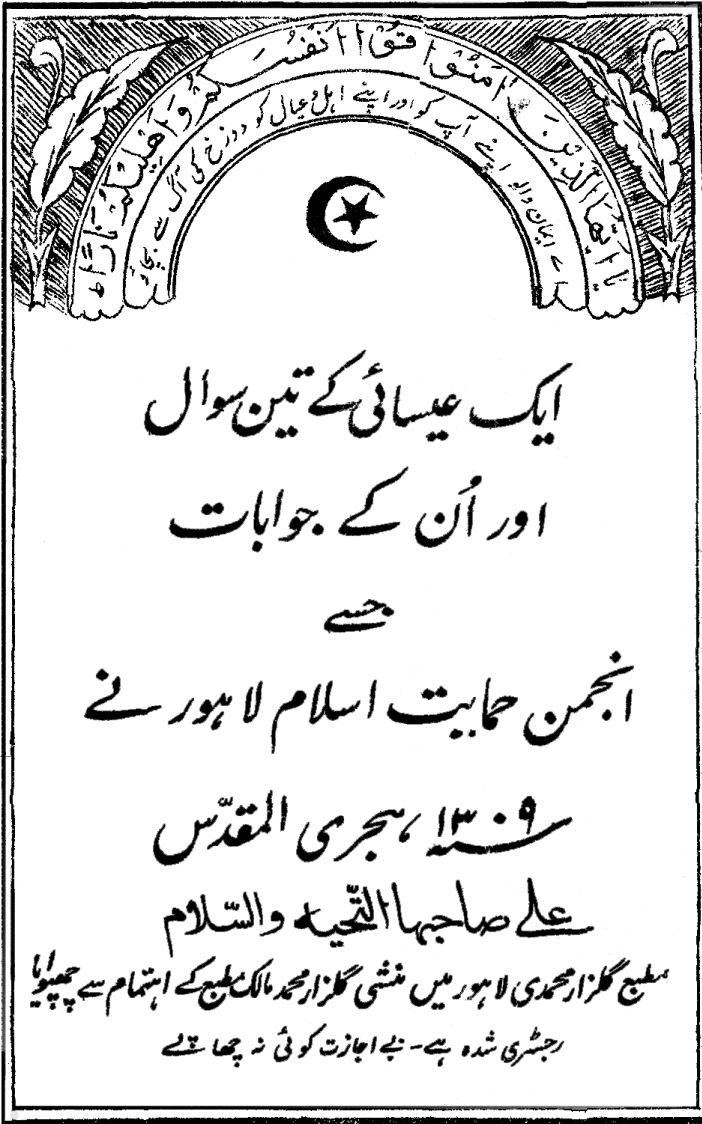 یا ایھا الذین اٰمنوا قوا انفسکم و اھلیکم نارا
اے ایمان والو اپنے آپ کو اور اپنے اہل و عیال کو دوزخ کی آگ سے بچاؤ
ایک عیسائی کے تین سوال
اور اُن کے جوابات
جسے
انجمن حمایت اسلام لاہور نے
سنہ ۱۳۰۹ ہجری المقدّس
علے صاحبہا التّحیہ والسّلام
مطبع گلزار محمدی لاہور میں منشی گلزار محمد مالک مطبع کے اہتمام سے چھپوایا
رجسٹری شدہ ہے۔ بے اجازت کوئی نہ چھاپے